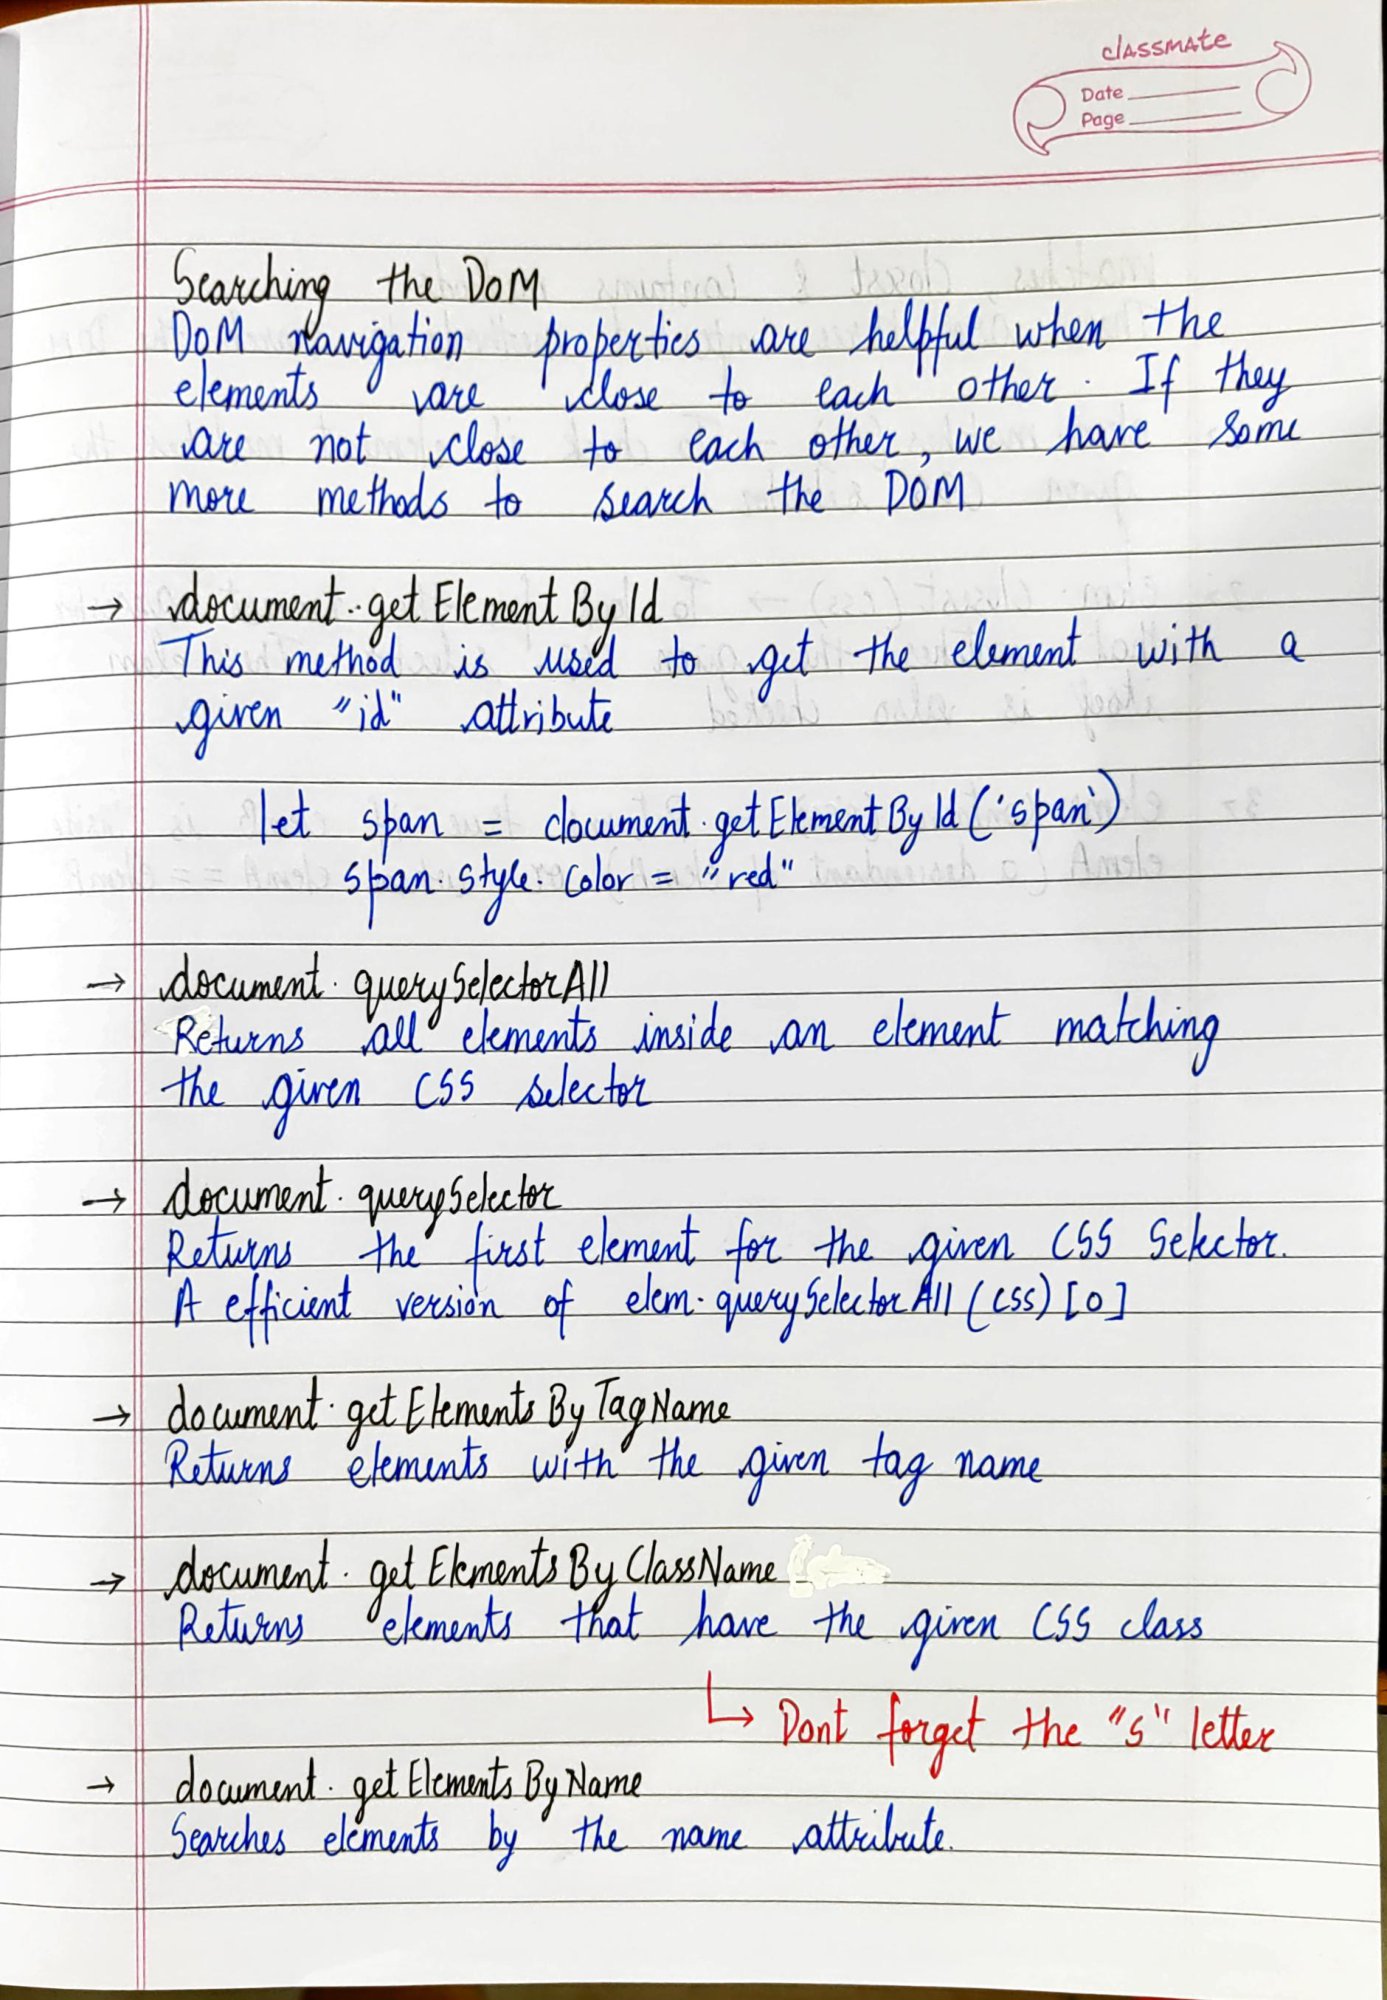 classmate
Date
Page
Searching the DOM
DOM navigation properties are helpful when the
elements are close to each other. If they
are not close to each other, we have some
more methods to search the DOM
→ document.getElementById
This method is used to get the element with a
given "id" attribute
let span = document.getElementById('span')
span.style.color = "red"
→ document.querySelectorAll
Returns all elements inside an element matching
the given CSS selector
→ document.querySelector
Returns the first element for the given CSS Selector.
A efficient version of elem.querySelectorAll(css)[0]
→ document.getElementsByTagName
Returns elements with the given tag name
→ document.getElementsByClassName
Returns elements that have the given CSS class
↳ Dont forget the "s" letter
→ document.getElementsByName
Searches elements by the name attribute.